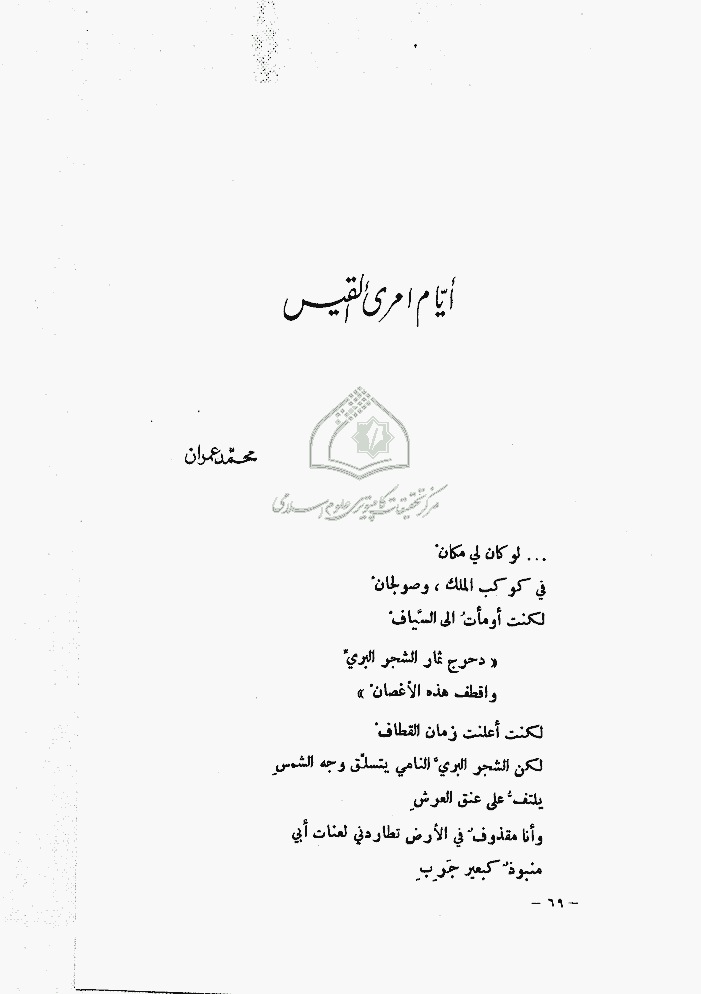 أيّام امرئ القيس
محمّد عمران
مركز تحقيقات كامپيوتري علوم اسلامي
... لو كان لي مكانْ
في كوكب الملك ، وصولجانْ
لكنت أومأتُ الى السيَّافْ
« دحرج ثمار الشجر البريّ
واقطف هذه الأغصانْ »
لكنت أعلنت زمان القطافْ
لكن الشجر البريَّ النامي يتسلّق وجه الشمسِ
يلتفُّ على عنق العرشِ
وأنا مقذوفٌ في الأرض تطاردني لعنات أبي
منبوذٌ كبعير جَرِبِ
– ٦٩ –